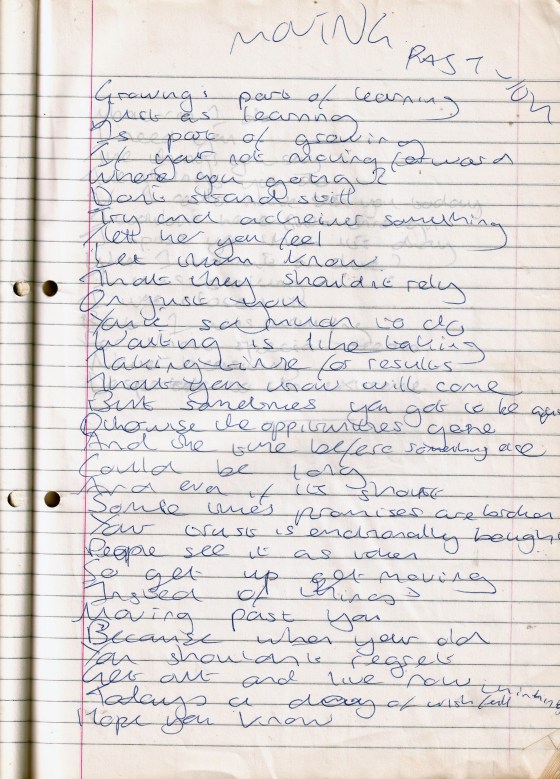 MOVING PAST YOU
Growing's part of learning
Just as learning
Is part of growing
If your not moving forward
Where you going?
Dont stand still
Try and acheive something
Tell her you feel
Let them know
That they shouldnt rely
On just you
You've so much to do
Waiting is like baking
Taking time for results
That you know will come
But sometimes you got to be
Otherwise the oppitunities gone
And the time before something else
Could be long
And even if its short
Sometimes promises are broken
Your trust is emotionally bought
People see it as
So get up get moving
Insted of things
Moving past you
Because when your old
You shouldnt regret
Get out and live now
Todays a day of wishfull thinking
Hope you know